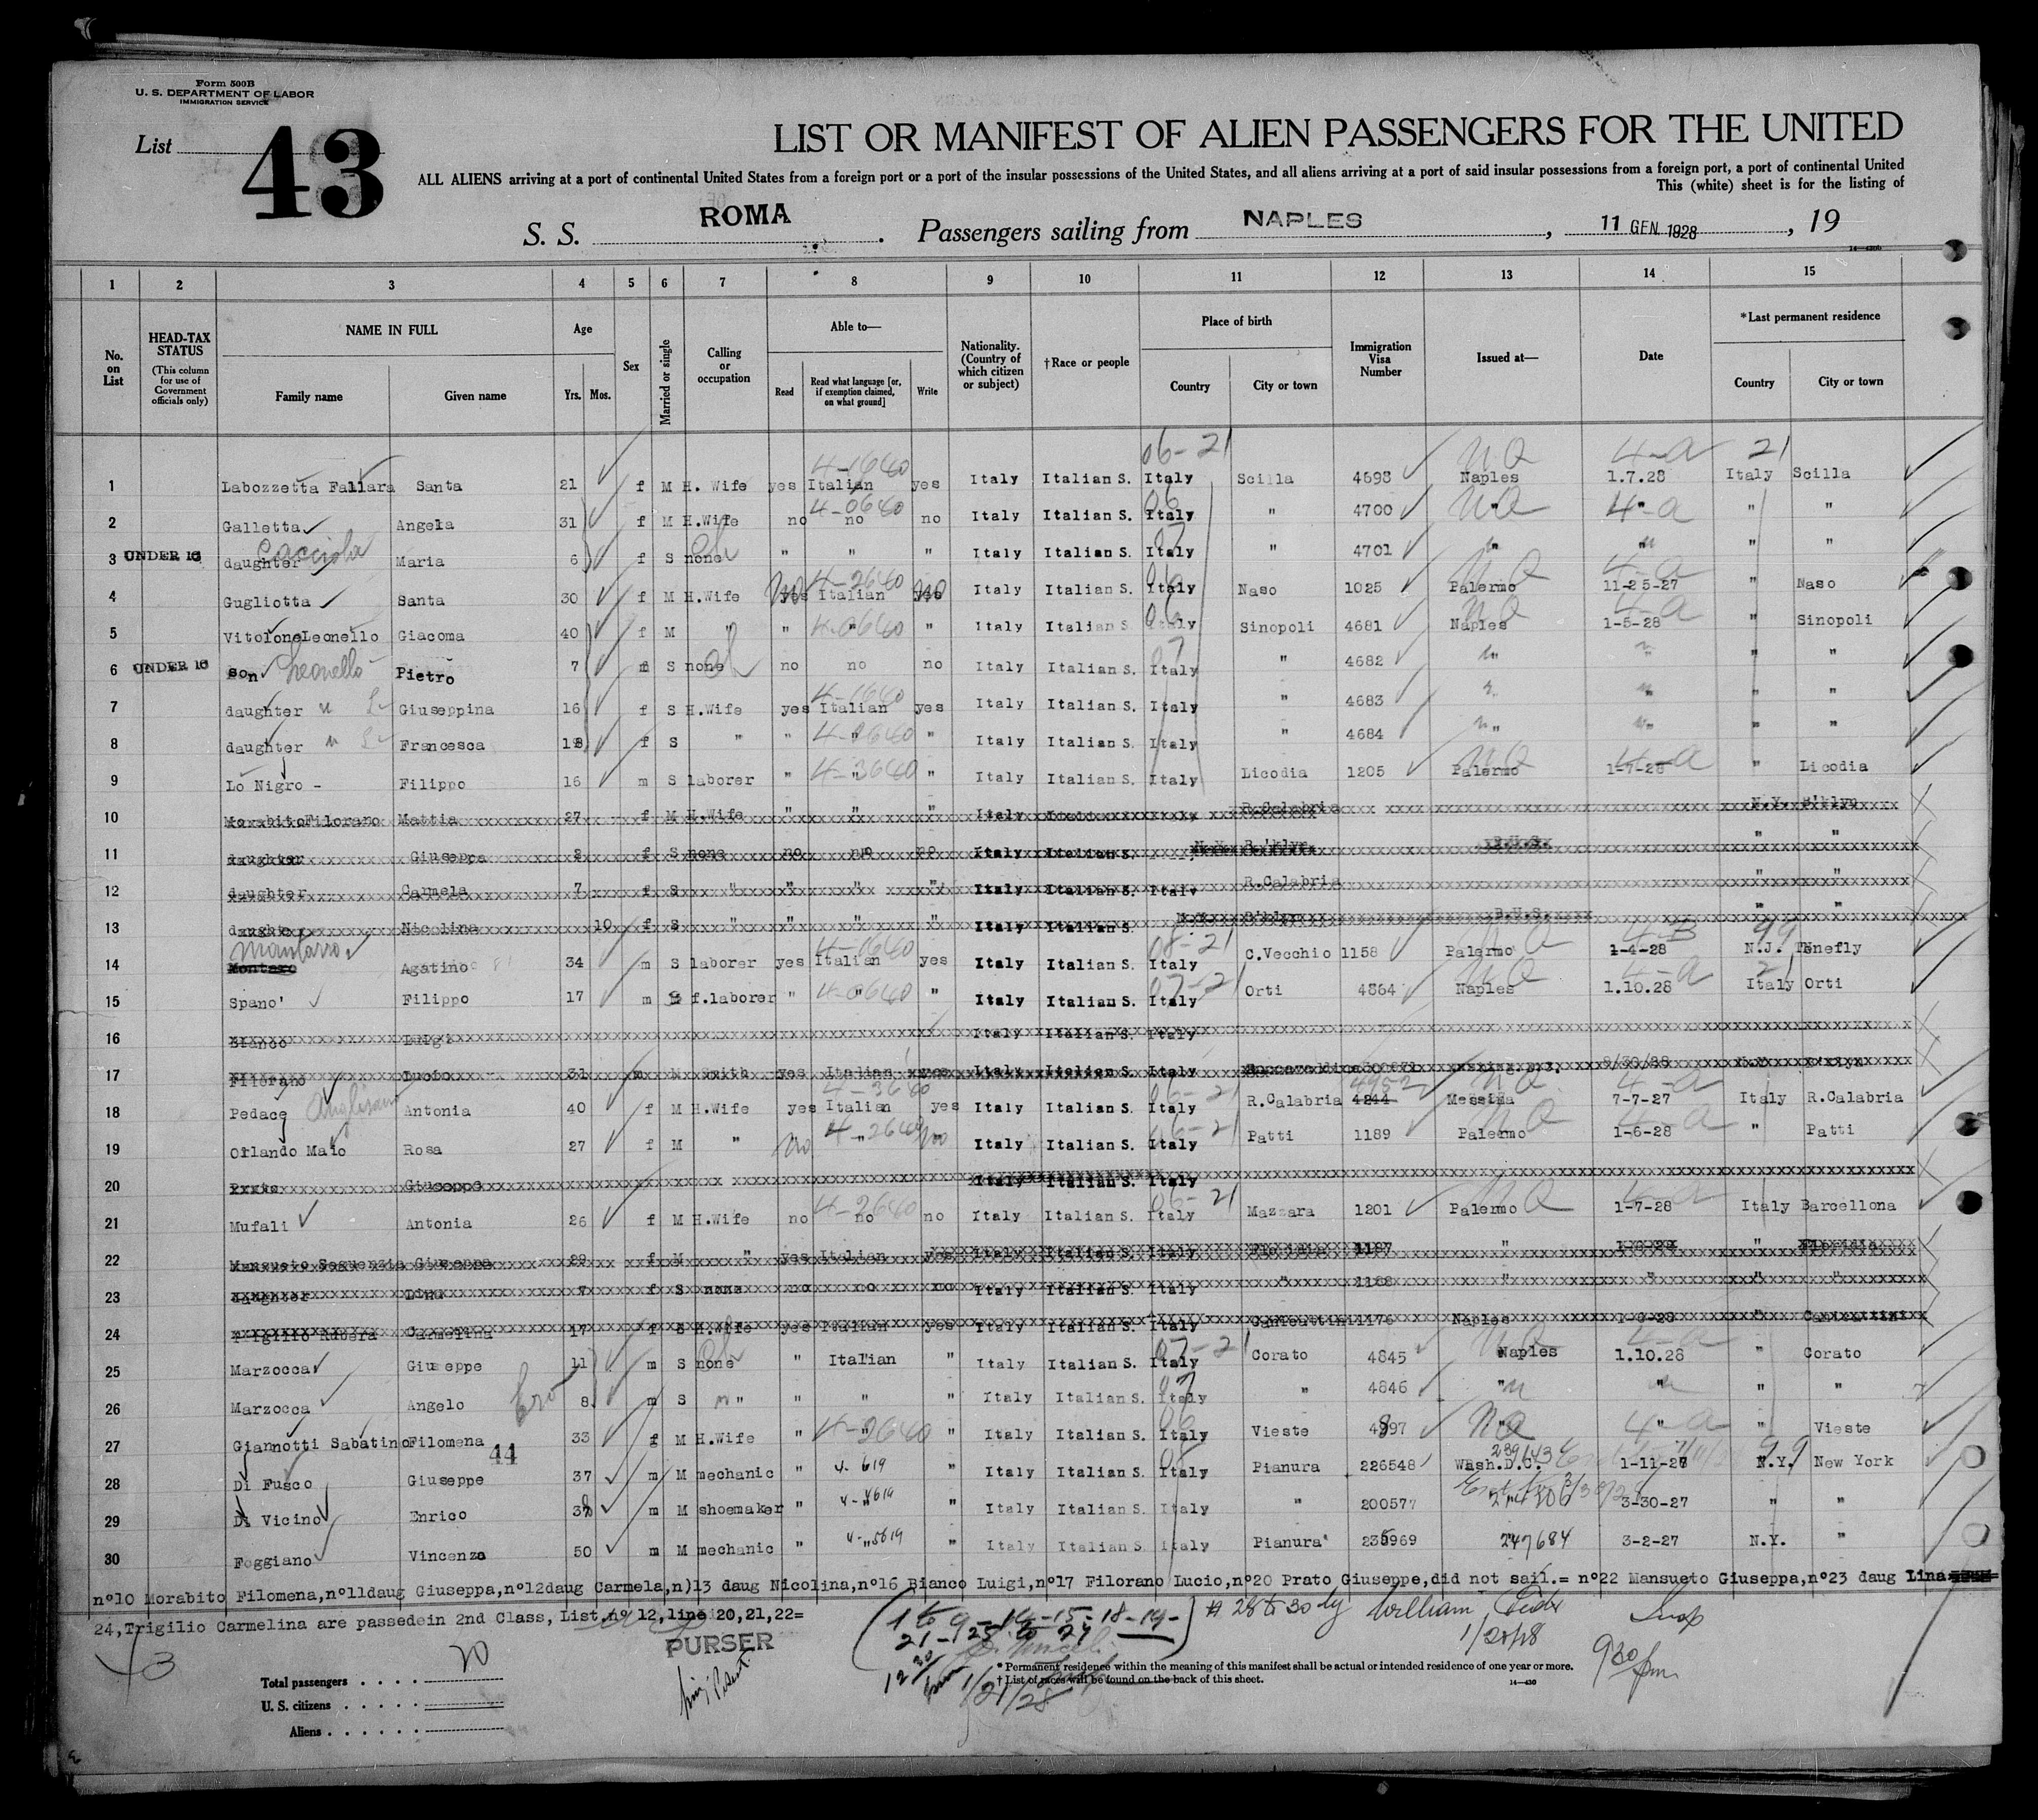 Form 500B
U. S. DEPARTMENT OF LABOR
IMMIGRATION SERVICE
List 43
LIST OR MANIFEST OF ALIEN PASSENGERS FOR THE UNITED
ALL ALIENS arriving at a port of continental United States from a foreign port or a port of the insular possessions of the United States, and all aliens arriving at a port of said insular possessions from a foreign port, a port of continental United
This (white) sheet is for the listing of
S. S. ROMA . Passengers sailing from NAPLES , 11 GEN. 1928 , 19
14—430b
1 2 3 4 5 6 7 8 9 10 11 12 13 14 15
No. on List
HEAD-TAX STATUS (This column for use of Government officials only)
NAME IN FULL Family name Given name
Age Yrs. Mos.
Sex
Married or single
Calling or occupation
Able to— Read Read what language [or, if exemption claimed, on what ground] Write
Nationality. (Country of which citizen or subject)
†Race or people
Place of birth Country City or town
Immigration Visa Number
Issued at—
Date
*Last permanent residence Country City or town
4-1640 06-21 NQ 4-a 21
1 Labozzetta Fallara Santa 21 f M H. Wife yes Italian yes Italy Italian S. Italy Scilla 4693 Naples 1.7.28 Italy Scilla
4-0640 06 NQ 4-a
2 Galletta Angela 31 f M H.Wife no no no Italy Italian S. Italy " 4700 " " " "
3 UNDER 16 daughter Cacciola Maria 6 f S none " " " Italy Italian S. Italy " 4701 " " " "
4 Gugliotta Santa 30 f M H.Wife yes No 4-2640 Italian yes No Italy Italian S. Italy Naso 1025 Palermo 11-25-27 " Naso
5 Vitolone Leonello Giacoma 40 f M " " 4-0640 " Italy Italian S. Italy Sinopoli 4681 Naples 1-5-28 " Sinopoli
6 UNDER 16 son Leonello Pietro 7 m S none no no no Italy Italian S. Italy " 4682 " " " "
7 daughter " Giuseppina 16 f S H.Wife yes 4-1640 Italian yes Italy Italian S. Italy " 4683 " " " "
8 daughter " Francesca 18 f S " " " " Italy Italian S. Italy " 4684 " " " "
9 Lo Nigro - Filippo 16 m S laborer " 4-3640 " Italy Italian S. Italy Licodia 1205 Palermo 1-7-28 " Licodia
10 Morabito Filorano Mattia 27 f M H.Wife " " " Italy R.Calabria N.Y. B'klyn
11 daughter Giuseppa f S none no no no Italy Italian S. N.Y. B'klyn B.H.S. " "
12 daughter Carmela 7 f S " " " " Italy Italian S. Italy R.Calabria " "
13 daughter Nicolina 10 f S " " " " Italy Italian S. N.Y. B'klyn B.H.S. " "
14 Montaro Mantarro Agatino 34 m S laborer yes Italian yes Italy Italian S. Italy C.Vecchio 1158 Palermo 1-4-28 N.J. Tenefly
15 Spano' Filippo 17 m S f.laborer " 4-0640 " Italy Italian S. Italy Orti 4864 Naples 1.10.28 Italy Orti
16 Bianco Luigi Italy Italian S. Italy
17 Filorano Lucio 31 m M Smith yes Italian yes Italy Italian S. Italy
18 Pedace Antonia 40 f M H.Wife yes 4-3640 Italian yes Italy Italian S. Italy R.Calabria 4244 4952 Messina 7-7-27 Italy R.Calabria
19 Orlando Maio Rosa 27 f M " No 4-2640 No Italy Italian S. Italy Patti 1189 Palermo 1-6-28 " Patti
20 Prato Giuseppe Italy Italian S. Italy
21 Mufali Antonia 26 f M H.Wife no 4-2640 no no Italy Italian S. Italy Mazzara 1201 Palermo 1-7-28 Italy Barcellona
22 Mansueto Seguenzia Giuseppa 29 f M " yes Italian yes Italy Italian S. Italy Floridia 1187 " "
23 daughter 7 f S none no no no Italy Italian S. Italy " 1188 " " " "
24 Trigilio Carmelina 17 f S H.Wife yes Italian yes Italy Italian S. Italy Canicattini 1176 Naples " Canicattini
25 Marzocca Giuseppe 11 m S none " Italian " Italy Italian S. Italy Corato 4845 Naples 1.10.28 " Corato
26 Marzocca Angelo 8 m S " " " " Italy Italian S. Italy " 4846 " " " "
27 Giannotti Sabatino Filomena 33 f M H.Wife " 4-2640 " Italy Italian S. Italy Vieste 4897 " " " Vieste
28 Di Fusco Giuseppe 44 37 m M mechanic " 4-619 " Italy Italian S. Italy Pianura 226548 Wash.D.C. 239143 1-11-27 N.Y. New York
29 Di Vicino Enrico 37 m M shoemaker " 4-4619 " Italy Italian S. Italy " 200577 3-30-27 " "
30 Foggiano Vincenzo 50 m M mechanic " 4-5619 " Italy Italian S. Italy Pianura 235969 247684 3-2-27 N.Y. "
nº10 Morabito Filomena,nº11daug Giuseppa,nº12daug Carmela,n)13 daug Nicolina,nº16 Bianco Luigi,nº17 Filorano Lucio,nº20 Prato Giuseppe,did not sail.= nº22 Mansueto Giuseppa,nº23 daug Lina
24,Trigilio Carmelina are passedein 2nd Class, List nº 12,line 20,21,22=
PURSER
(1 to 9-14-15-18-19-
21-25 to 27)
12 30 pm 1/21/28
# 28 to 30 by William Insp
1/20/28
930 pm
43
Total passengers . . . . 20
U. S. citizens . . . . .
Aliens . . . . . .
* Permanent residence within the meaning of this manifest shall be actual or intended residence of one year or more.
† List of races will be found on the back of this sheet.
14—430